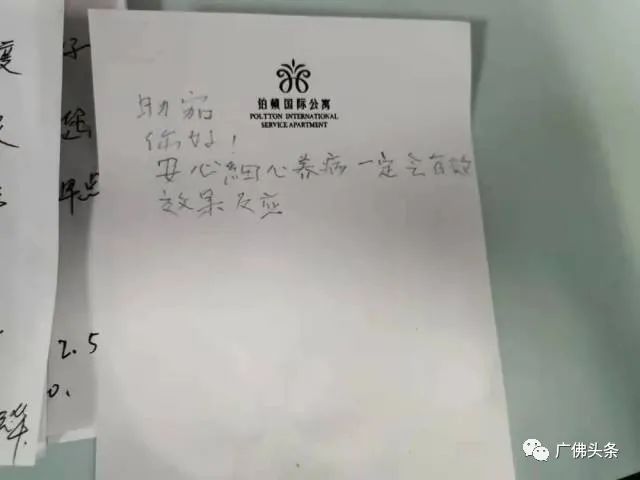 铂顿国际公寓
POLTTON INTERNATIONAL
SERVICE APARTMENT
你好！
安心细心养病一定会有效
效果反应
早点
2.5
0.
广佛头条